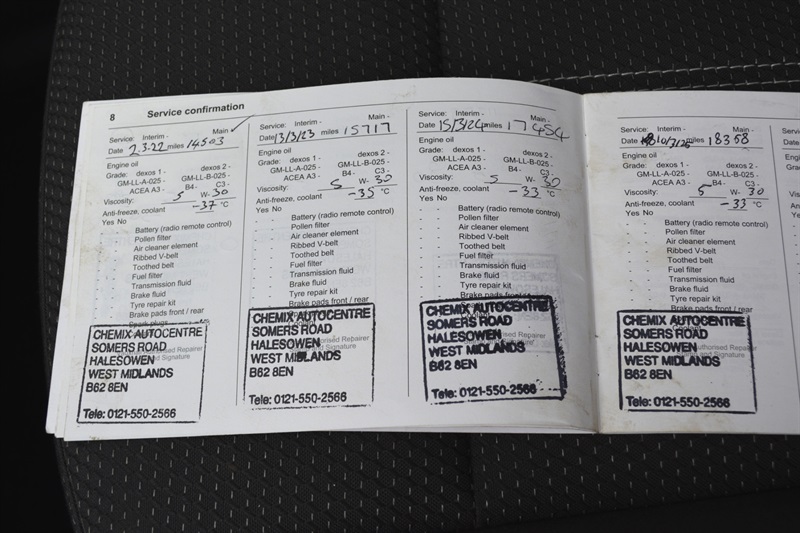 8 Service confirmation
Service: Interim - Main -
Date 2.3.22 miles 14503
Engine oil
Grade: dexos 1 - dexos 2 -
GM-LL-A-025 - GM-LL-B-025 -
ACEA A3 - B4- C3 -
Viscosity: 5 W- 30
Anti-freeze, coolant -37 °C
Yes No
- - Battery (radio remote control)
- - Pollen filter
- - Air cleaner element
- - Ribbed V-belt
- - Toothed belt
- - Fuel filter
- - Transmission fluid
- - Brake fluid
- - Tyre repair kit
- - Brake pads front / rear
CHEMIX AUTOCENTRE
SOMERS ROAD
HALESOWEN
WEST MIDLANDS
B62 8EN
Tele: 0121-550-2566
Service: Interim - Main -
Date 13/3/23 miles 15717
Engine oil
Grade: dexos 1 - dexos 2 -
GM-LL-A-025 - GM-LL-B-025 -
ACEA A3 - B4- C3 -
Viscosity: 5 W- 30
Anti-freeze, coolant -35 °C
Yes No
- - Battery (radio remote control)
- - Pollen filter
- - Air cleaner element
- - Ribbed V-belt
- - Toothed belt
- - Fuel filter
- - Transmission fluid
- - Brake fluid
- - Tyre repair kit
- - Brake pads front / rear
CHEMIX AUTOCENTRE
SOMERS ROAD
HALESOWEN
WEST MIDLANDS
B62 8EN
Tele: 0121-550-2566
Service: Interim - Main -
Date 15/3/24 miles 17454
Engine oil
Grade: dexos 1 - dexos 2 -
GM-LL-A-025 - GM-LL-B-025 -
ACEA A3 - B4- C3 -
Viscosity: 5 W- 30
Anti-freeze, coolant -33 °C
Yes No
- - Battery (radio remote control)
- - Pollen filter
- - Air cleaner element
- - Ribbed V-belt
- - Toothed belt
- - Fuel filter
- - Transmission fluid
- - Brake fluid
- - Tyre repair kit
- - Brake pads front / rear
CHEMIX AUTOCENTRE
SOMERS ROAD
HALESOWEN
WEST MIDLANDS
B62 8EN
Tele: 0121-550-2566
Service: Interim - Main -
Date miles 18358
Engine oil
Grade: dexos 1 - dexos 2 -
GM-LL-A-025 - GM-LL-B-025 -
ACEA A3 - B4- C3 -
Viscosity: 5 W- 30
Anti-freeze, coolant -33 °C
Yes No
- - Battery (radio remote control)
- - Pollen filter
- - Air cleaner element
- - Ribbed V-belt
- - Toothed belt
- - Fuel filter
- - Transmission fluid
- - Brake fluid
- - Tyre repair kit
- - Brake pads front / rear
CHEMIX AUTOCENTRE
SOMERS ROAD
HALESOWEN
WEST MIDLANDS
B62 8EN
Tele: 0121-550-2566